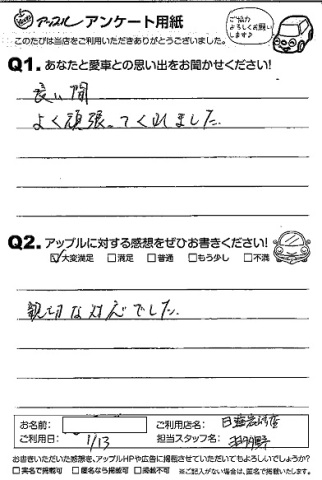 アップル アンケート用紙
ご協力よろしくお願いします♪
このたびは当店をご利用いただきありがとうございました。
Q1.あなたと愛車との思い出をお聞かせください!
長い間
よく頑張ってくれました。
Q2.アップルに対する感想をぜひお書きください!
☑大変満足 □満足 □普通 □もう少し □不満
親切な対応でした。
お名前: ご利用店名:
ご利用日: 1/13 担当スタッフ名:
お書きいただいた感想を、アップルHPや広告に掲載させていただいてもよろしいでしょうか?
□実名で掲載可 □匿名なら掲載可 □掲載不可 ※ご記入がない場合は、匿名で掲載いたします。